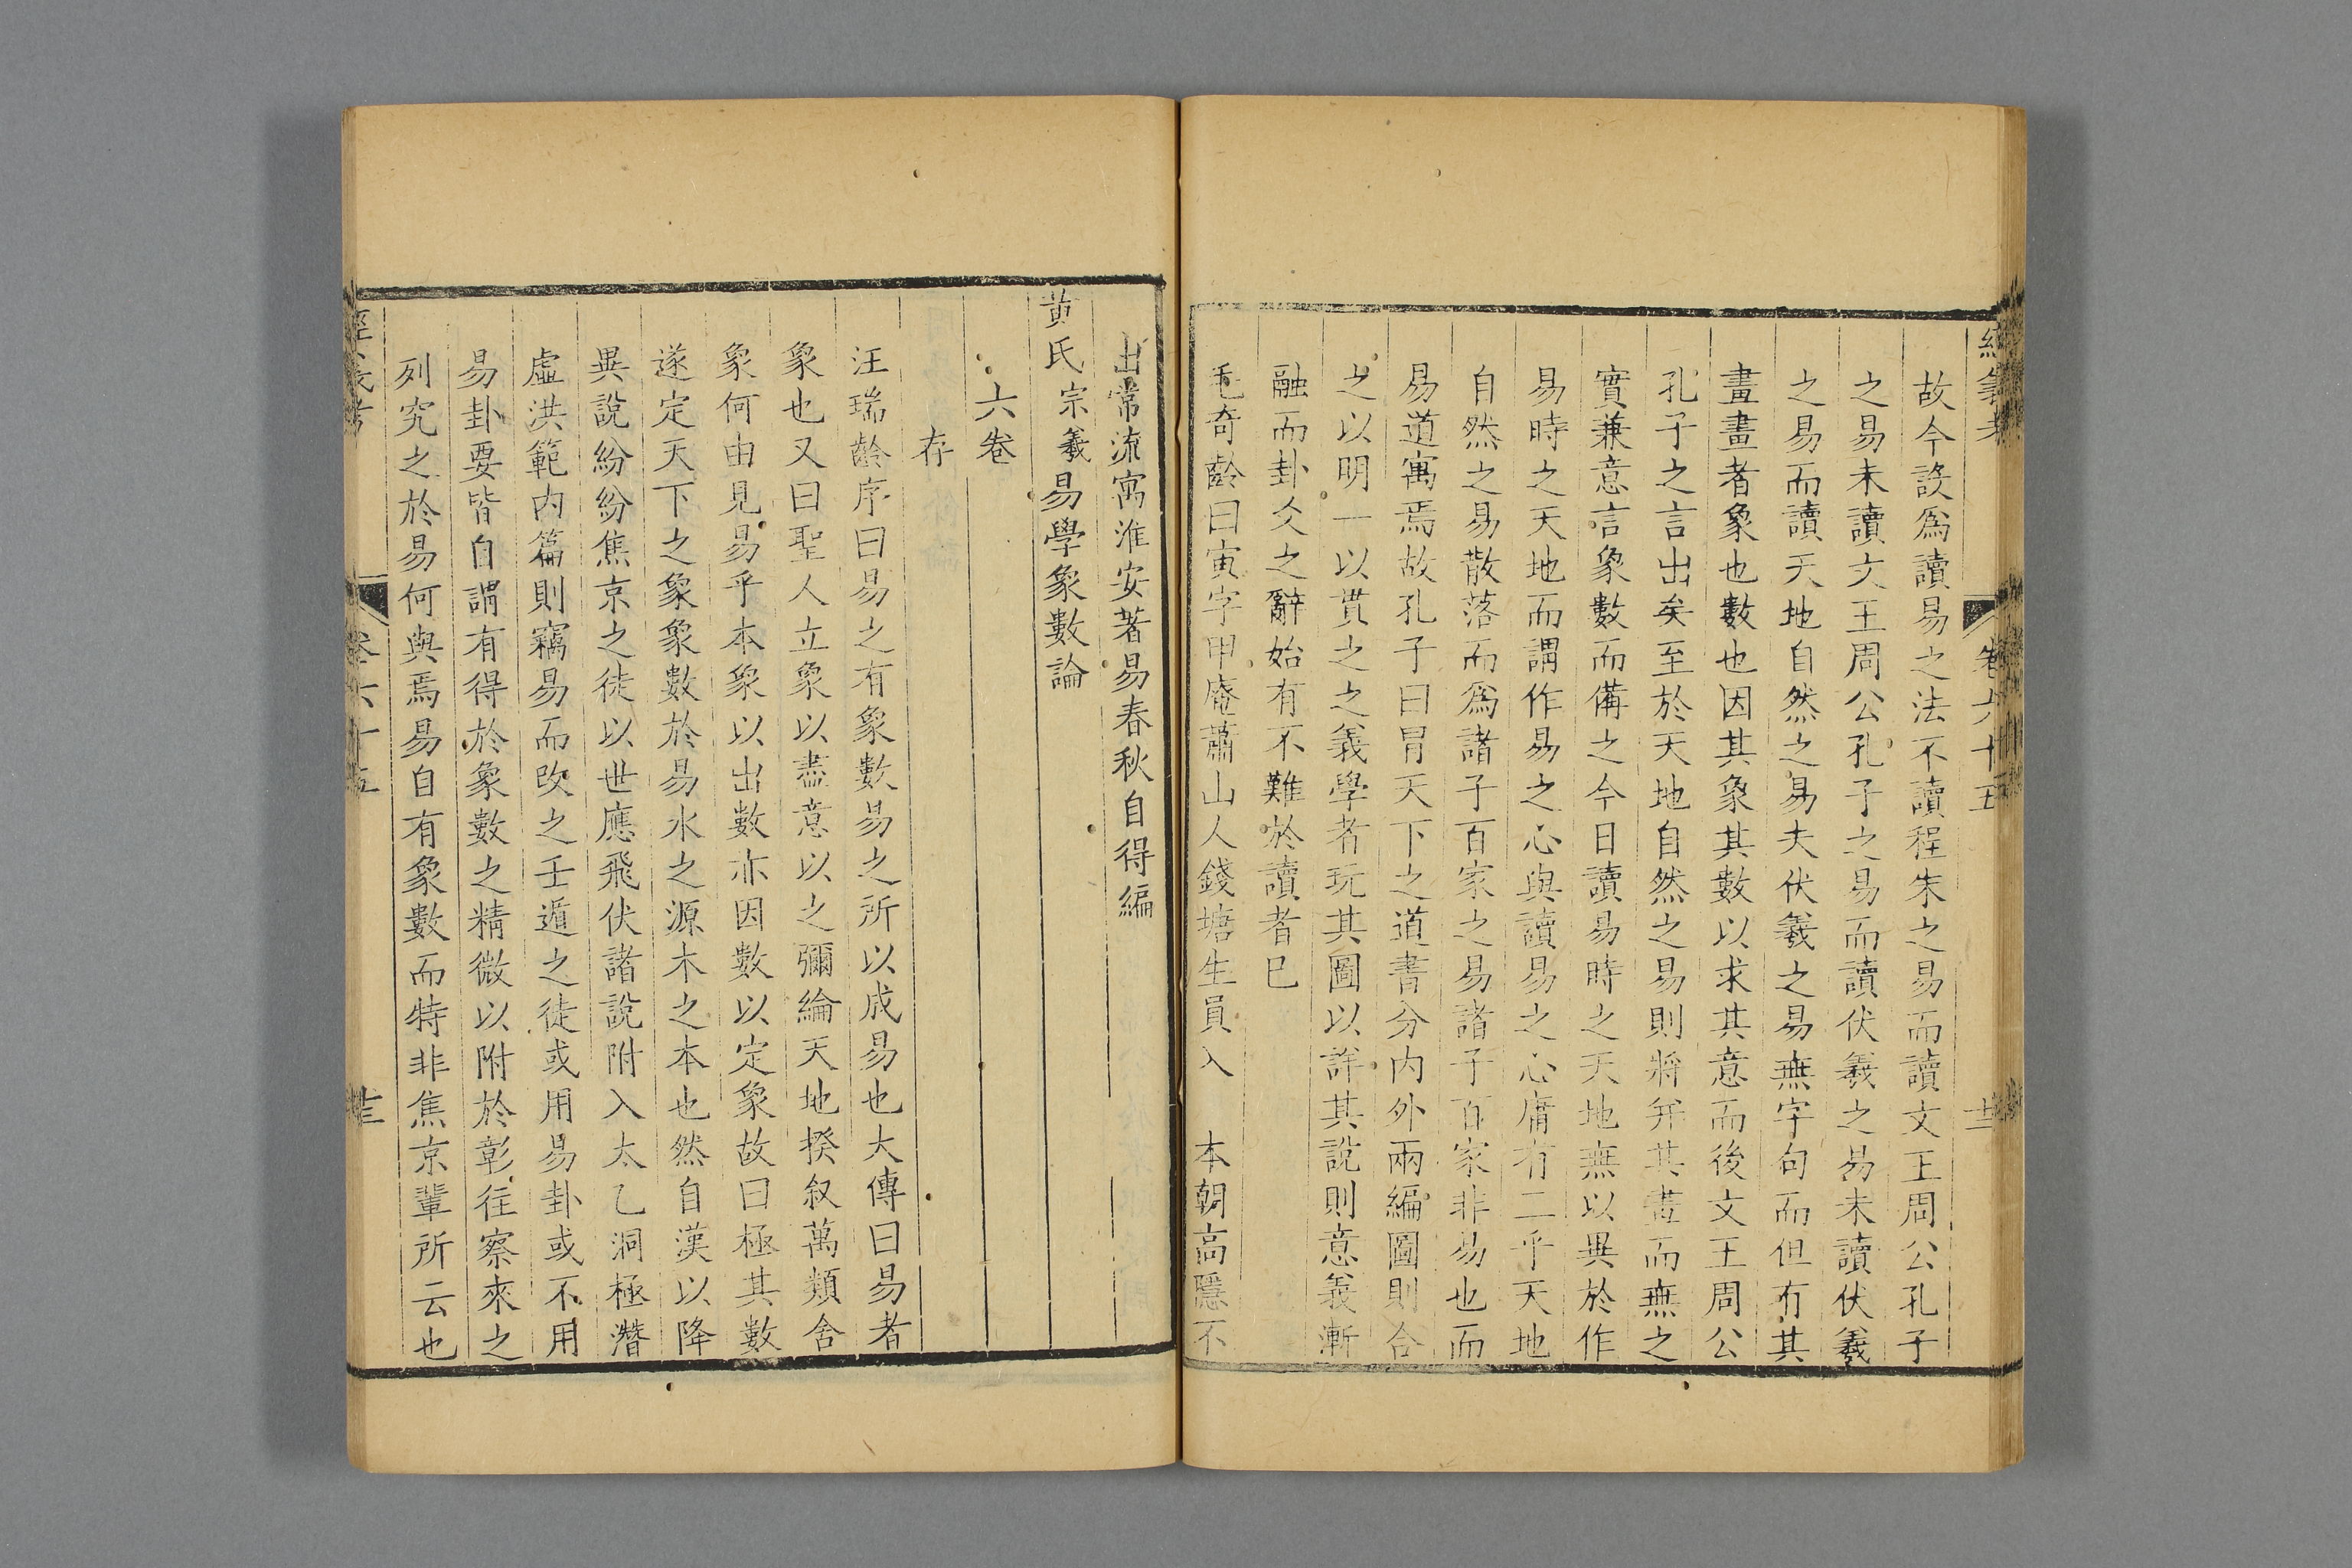 經義考
卷六十五
故今設爲讀易之法不讀程朱之易而讀文王周公孔子
之易未讀文王周公孔子之易而讀伏羲之易未讀伏羲
之易而讀天地自然之易夫伏羲之易無字句而但有其
畫畫者象也數也因其象其數以求其意而後文王周公
孔子之言出矣至於天地自然之易則將并其畫而無之
實兼意言象數而備之今日讀易時之天地無以異於作
易時之天地而謂作易之心與讀易之心庸有二乎天地
自然之易散落而爲諸子百家之易諸子百家非易也而
易道寓焉故孔子曰冐天下之道書分内外兩編圖則合
之以明一以貫之之義學者玩其圖以詳其說則意義漸
融而卦爻之辭始有不難於讀者已
毛奇齡曰寅字甲庵蕭山人錢塘生員入　本朝高隱不
出常流寓淮安著易春秋自得編
黄氏宗羲易學象數論
六卷
存
汪瑞齡序曰易之有象數易之所以成易也大傳曰易者
象也又曰聖人立象以盡意以之彌綸天地揆叙萬類舍
象何由見易乎本象以出數亦因數以定象故曰極其數
遂定天下之象象數於易水之源木之本也然自漢以降
異說紛紛焦京之徒以世應飛伏諸說附入太乙洞極潛
虛洪範内篇則竊易而改之壬遁之徒或用易卦或不用
易卦要皆自謂有得於象數之精微以附於彰往察來之
列究之於易何與焉易自有象數而特非焦京輩所云也
經義考
卷六十五